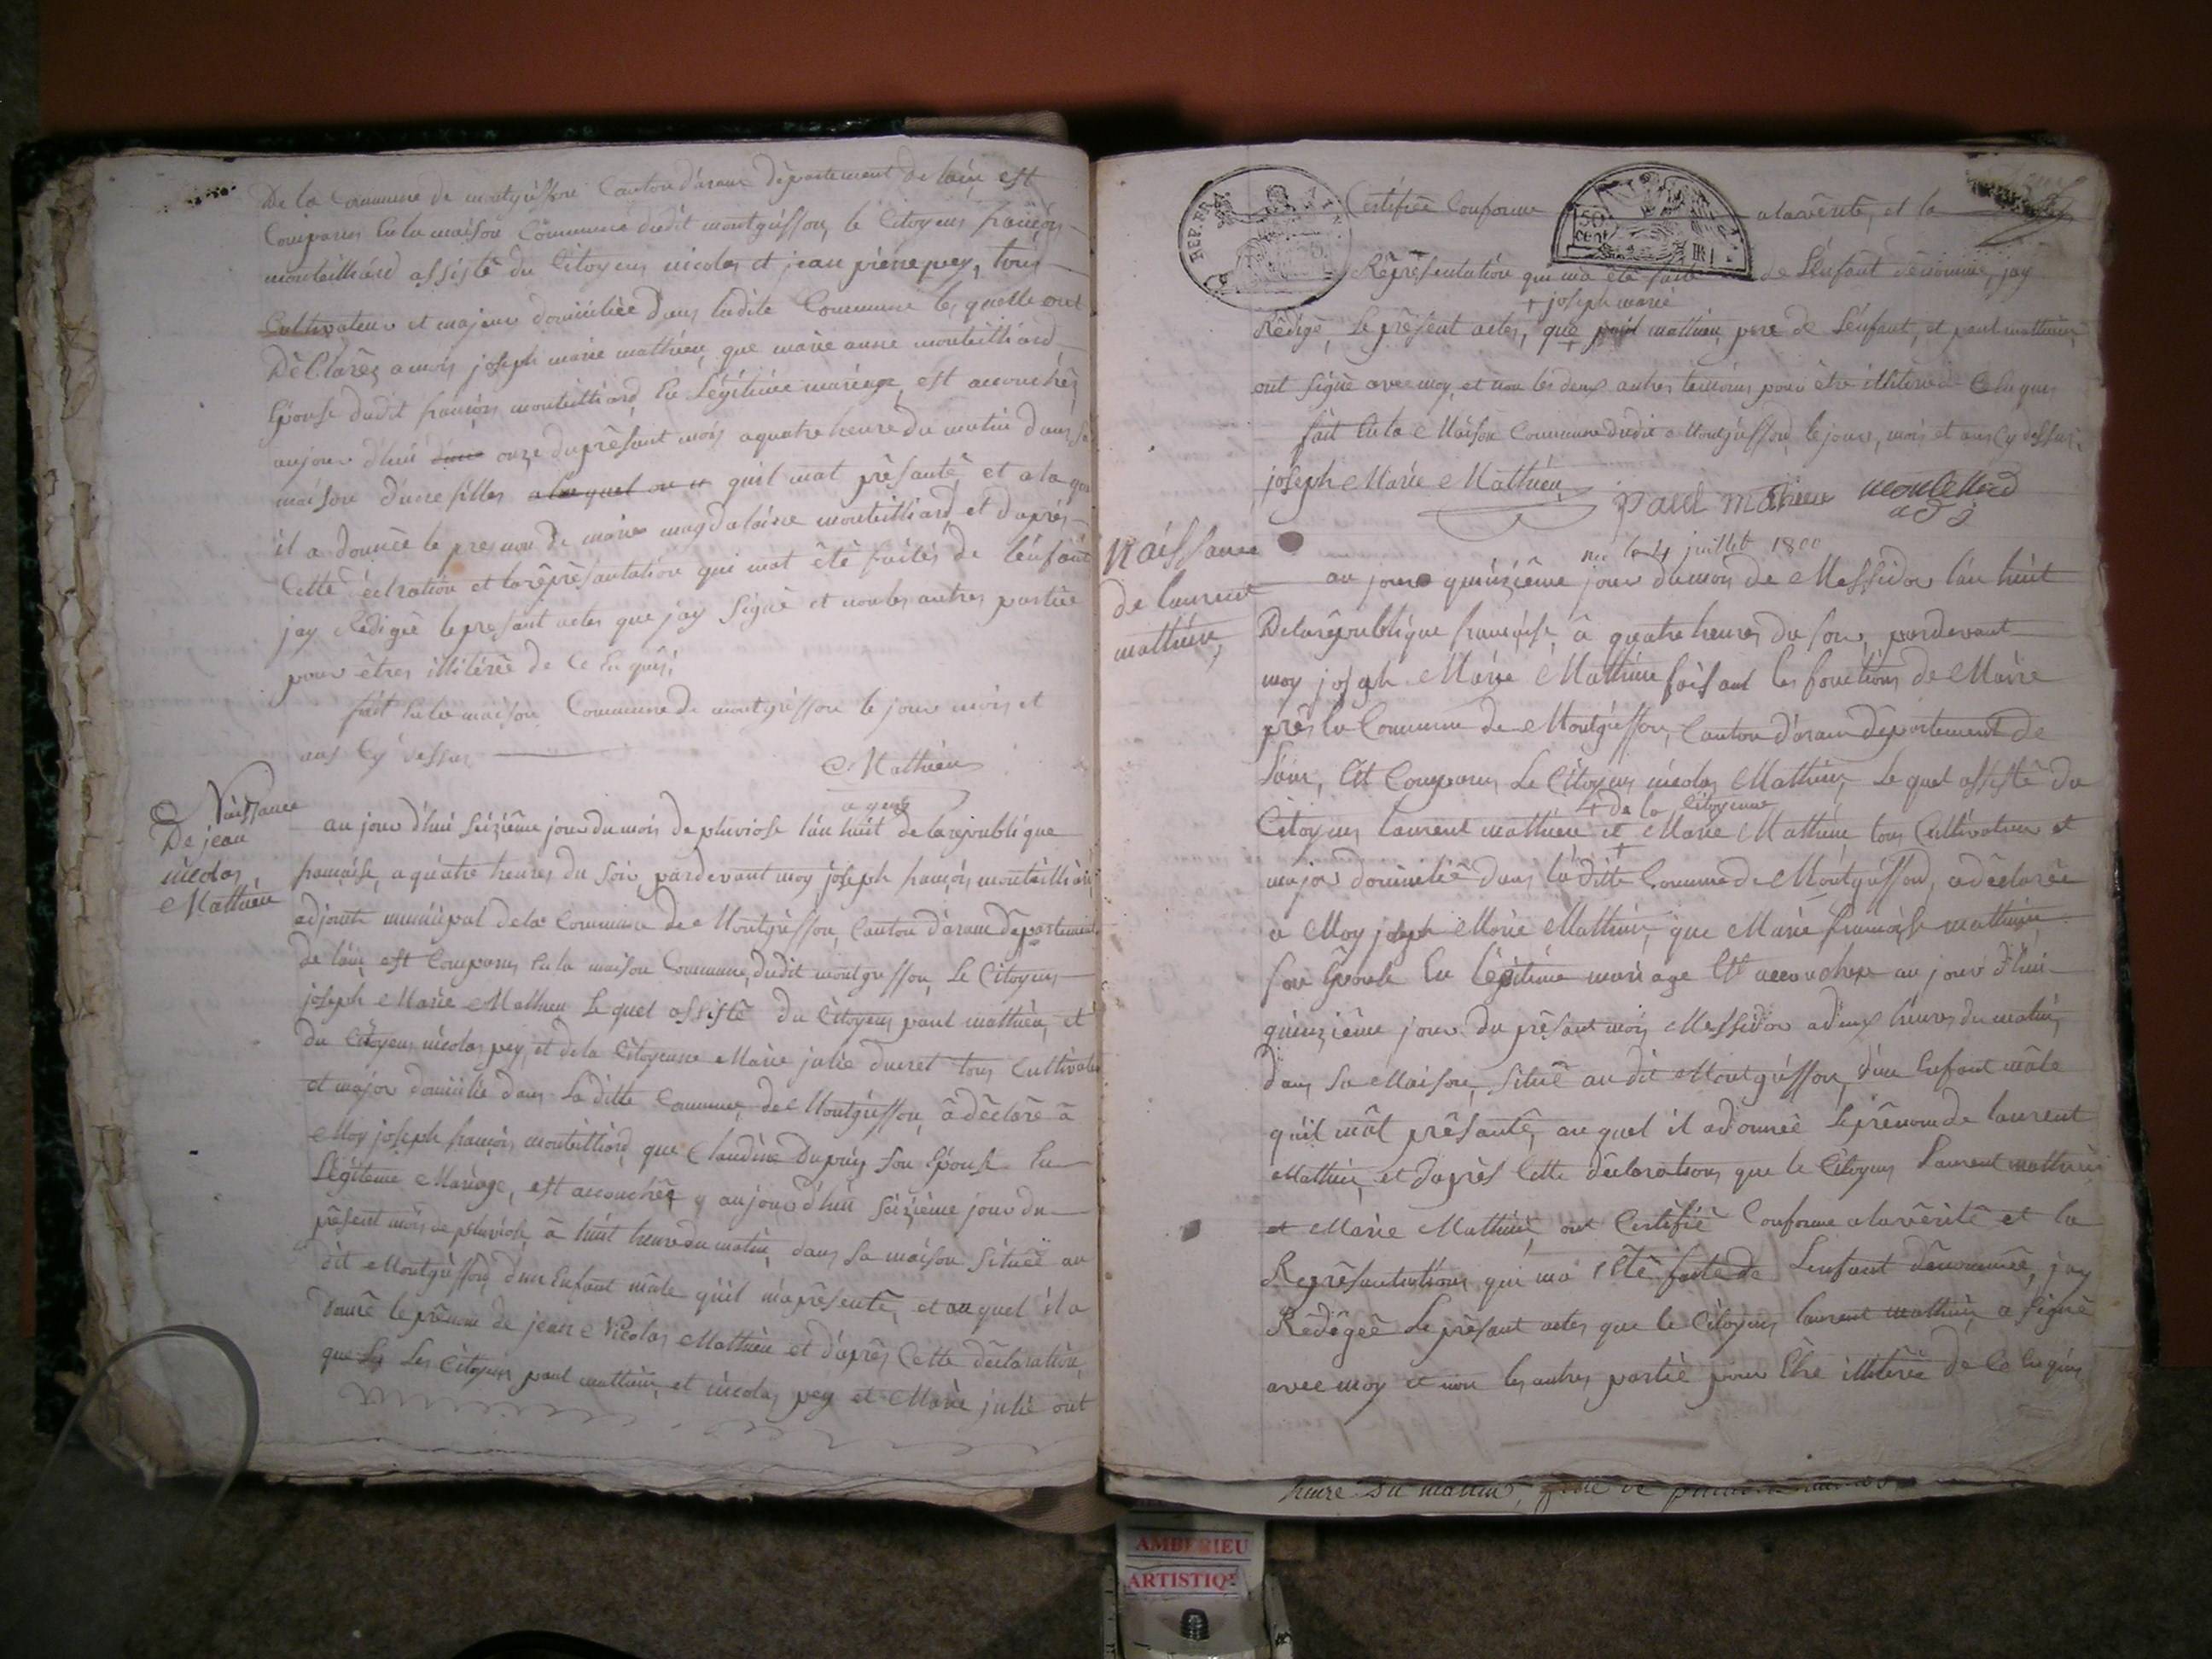 De la Commune de montgriffon Canton d'aranc département de lain est
Comparus En la maison Commune dudit montgriffon, le Citoyens françois
monteilliard assisté du Citoyens nicolas et jean pierre pey, tous
Cultivateur et majeur domiciliée dans ladite Commune les quelle ont
Déclarés a moi joseph marie mathieu, que marie anne monteilliard
Epouse dudit françois monteilliard En Légitime mariage, est accouchés
aujour d'hui onze duprésant mois aquatre heure du matin dans sa
maison d'une filles quil mat présanté et a la que
il a donnée le prenom de marie magdaloine monteilliard et d'aprés
Cette et la réprésantation qui mat été faites de l'énfant
jay Rédigée le présant actes que jay signé et non les autres partie
pour êtres illitérée de Ce En quis.
fait En la maison Commune de montgriffon le jour mois et
ans Cy dessus
Mathieu
agent
Naissance
De jean
nicolas
Mathieu
au jour d'hui seizième jour du mois de pluviose l'an huit de la republique
française, a quatre heures du soir, pardevant moy joseph françois monteilliard
adjoint municipal de la Commune de Montgriffon, Canton d'aranc département
de lain, est Comparus En la maison Commune, dudit montgriffon, Le Citoyens
joseph Marie Mathieu Le quel assisté du Citoyens paul mathieu, et
du Citoyens nicolas pey, et de la Citoyenne Marie julie ducret tous Cultivateur
et major domicilie dans la ditte Commune de Montgriffon, à déclaré à
Moy joseph françois monteilliard que Claudine Dupuis son Epouse En
Légitime Mariage, est accouchée aujour d'hui seizième jour du
présent mois de pluviose, à huit heure du matin, dans sa maison située au
dit Montgriffon d'un Enfant mâle quil m'a présenté, et au quel il a
donné le prénom de jean Nicolas Mathieu et d'après Cette déclaration,
que Les Citoyens paul mathieu, et nicolas pey et Marie julie ont
REP. FR.
50
cent
Certifiée Conforme a la vérité, et la
Réprésentation qui ma été faite de L'énfant dénommé, jay
+ joseph marie
Rédigé, Le présent actes, que mathieu pere de L'énfant, et paul mathieu,
ont signé avec moy, et non les deux autres temoins pour être illiterée de Ce En quis
fait En la Maison Commune dudit Montgriffon, le jour, mois et ans Cy dessus.
joseph Marie Mathieu
paul mathieu
monteilliard
adj
Naissance
de laurent
mathieu,
né le 4 juillet 1800
au jour quinzième jour du mois de Messidor l'an huit
De la république française, à quatre heures du soir, pardevant
moy joseph Marie Mathieu faisant les fonctions de Maire
près la Commune de Montgriffon, Canton d'aranc département de
Lain, Est Comparus Le Citoyens nicolas Mathieu Le quel assisté du
+ de la Citoyenne
Citoyens laurent mathieu et + Marie Mathieu, tous Cultivateur et
major domicilié dans la ditte Commune de Montgriffon, a déclarée
a Moy joseph Marie Mathieu, que Marie françoise mathieu
son Epouse En légitime mariage Est accouchée au jour d'hui
quinzième jour du présant mois Messidor a deux heures du matin,
dans sa Maison, située au dit Montgriffon, d'un Enfant mâle
quil mât présanté, au quel il a donnée Le prénom de laurent
Mathieu, et d'après Cette déclaration, que le Citoyens Laurent mathieu
et Marie Mathieu, ont Certifié Conforme a la vérité et la
Réprésantation, qui ma été faite de L'enfant dénommée, jay
Rédigée Le présant actes que le Citoyens laurent mathieu, a signé
avec moy et non les autres partie pour Etre illitérée de Ce En quis
heure du matin,
AMBERIEU
ARTISTIQ